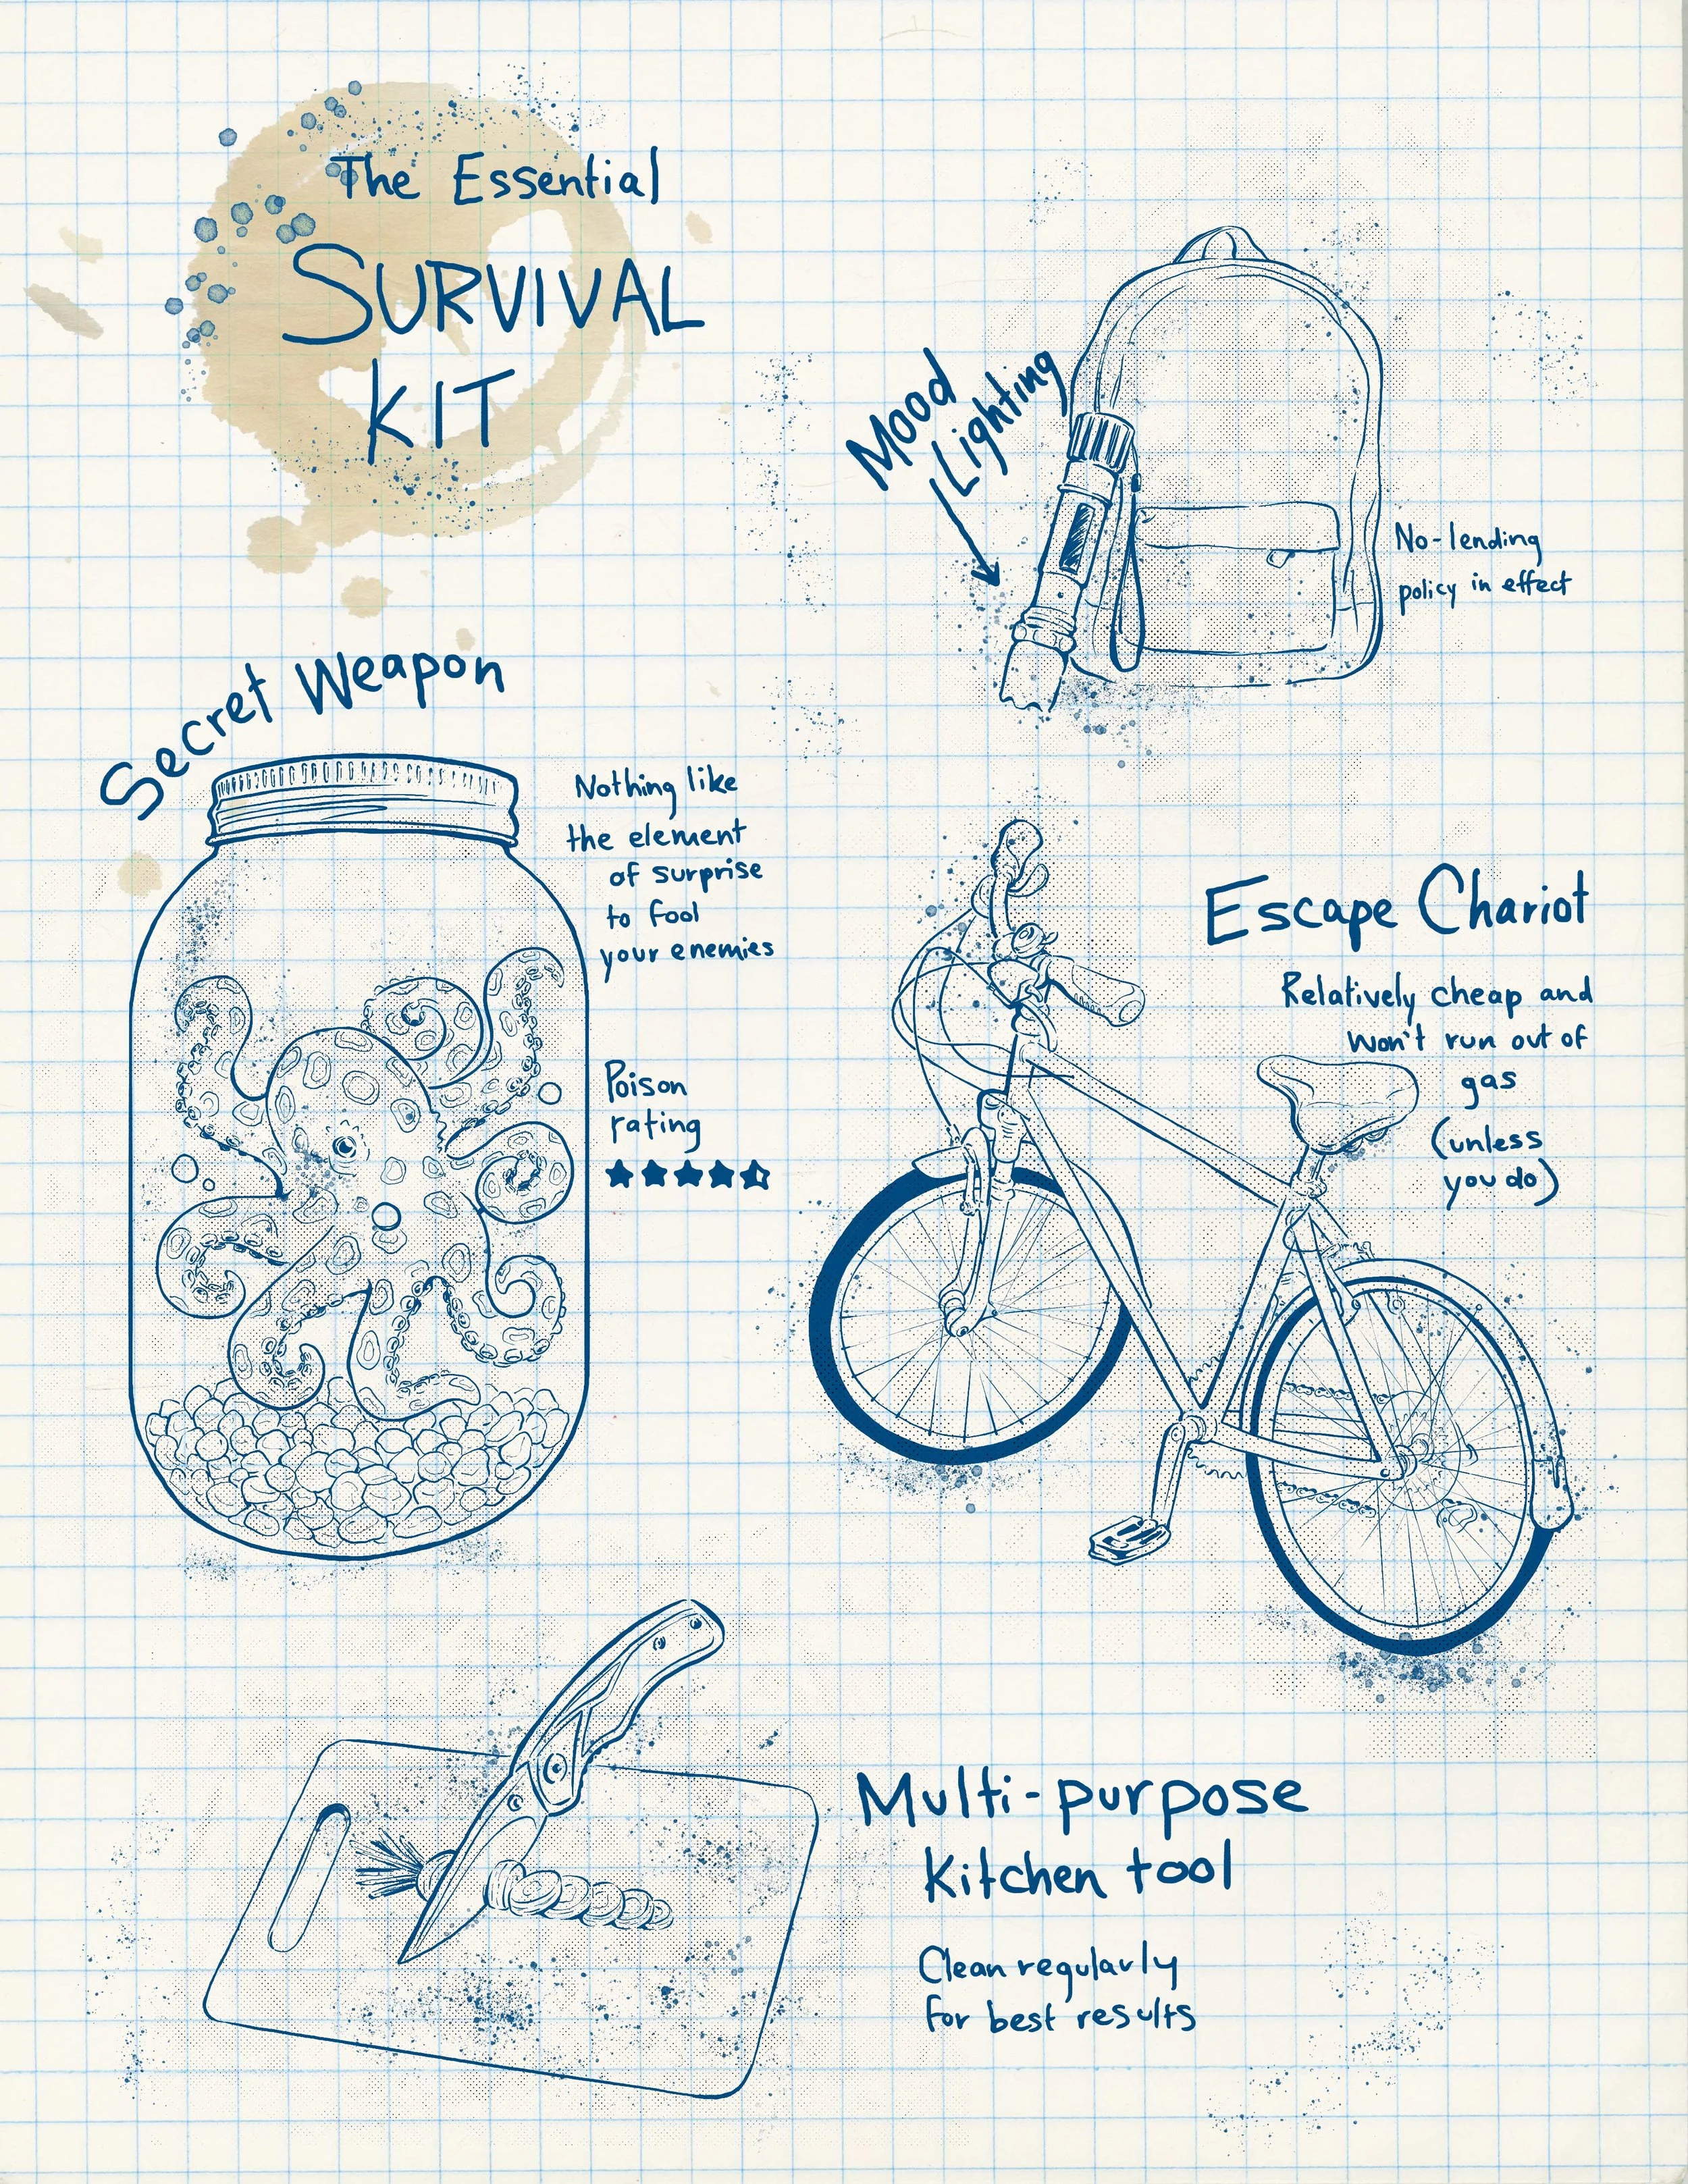 The Essential
SURVIVAL
KIT
Mood
Lighting
No-lending
policy in effect
Secret Weapon
Nothing like
the element
of surprise
to fool
your enemies
Poison
rating
Escape Chariot
Relatively cheap and
won't run out of
gas
(unless
you do)
Multi-purpose
Kitchen tool
Clean regularly
for best results